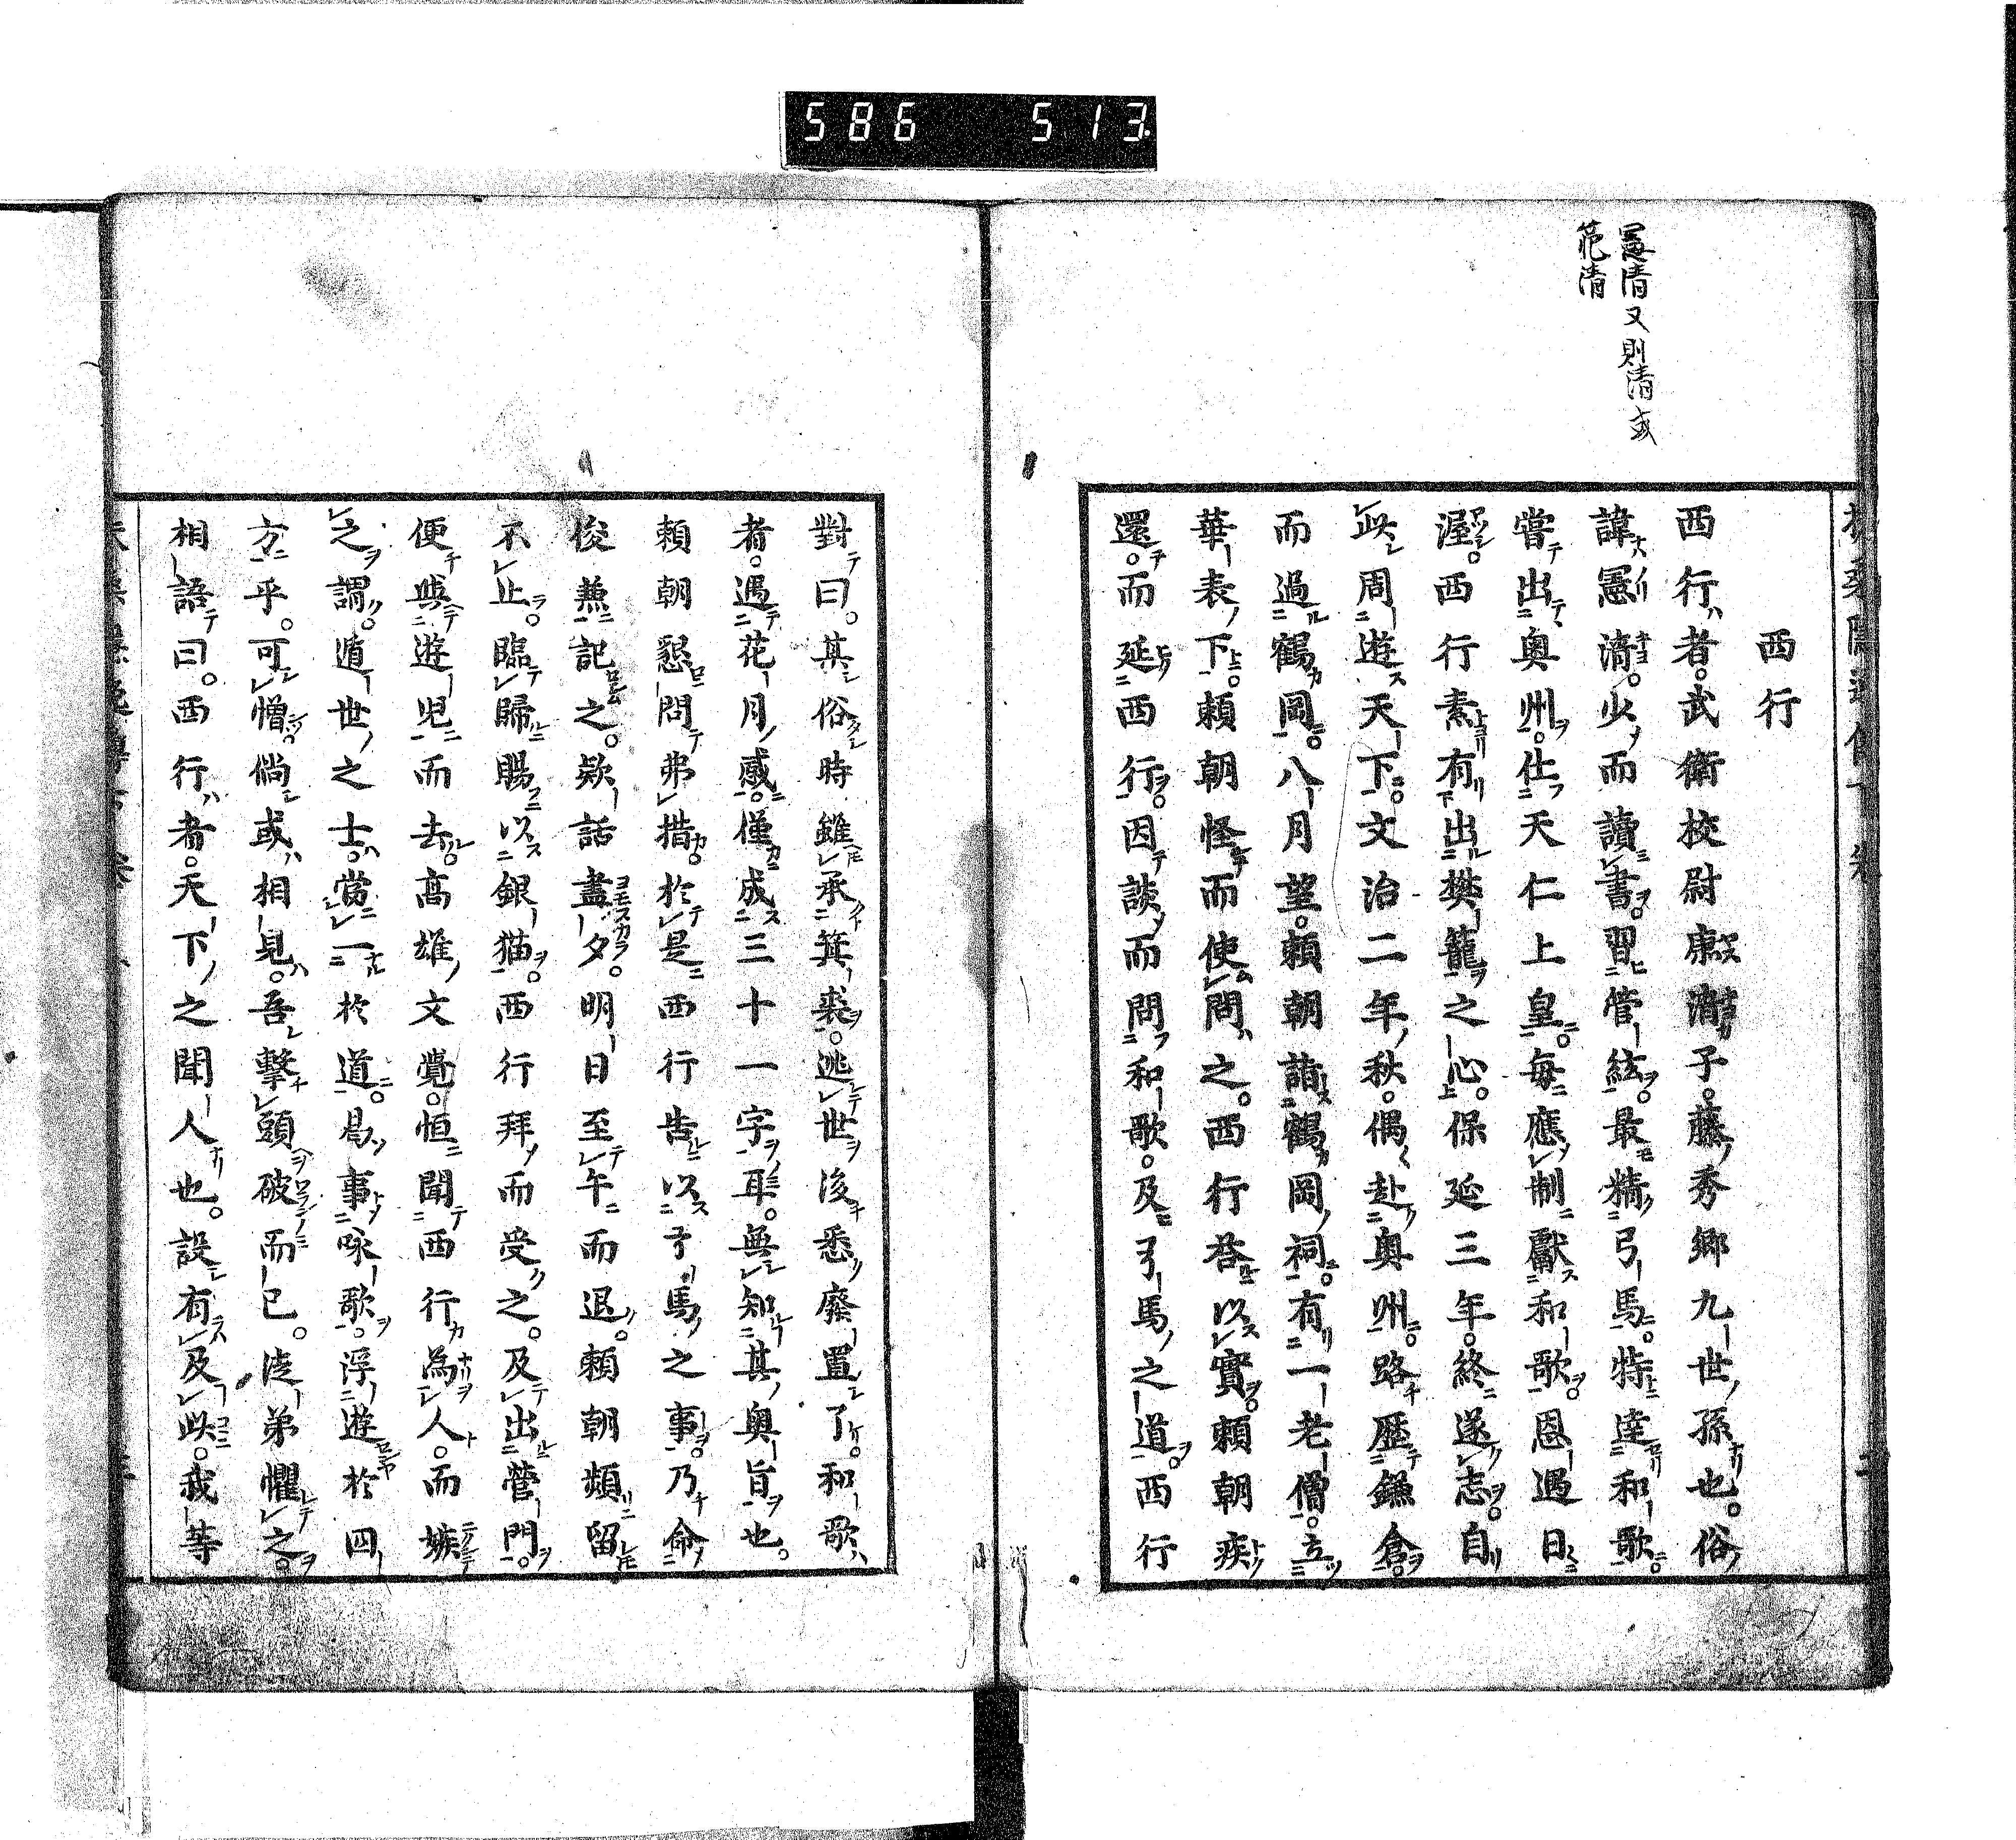 586 513
憲清又則清或
範清
西行
西行者。武衛校尉康清子。藤秀鄉九世孫也。俗
諱憲清。少而讀書。習管絃。最精弓馬。特達和歌。
嘗出奧州。仕天仁上皇。每應制獻和歌。恩遇日
渥。西行素有出樊籠之心。保延三年。終遂志。自
此周遊天下。文治二年秋。偶赴奧州。路歷鎌倉。
而過鶴岡。八月望。賴朝詣鶴岡祠。有一老僧。立
華表下。賴朝怪而使問之。西行答以實。賴朝疾
還。而延西行。因談而問和歌。及弓馬之道。西行
對曰。其俗時雖承箕裘。逃世後悉廢置了。和歌
者。遇花月感。僅成三十一字耳。無知其奧旨也。
賴朝懇問弗措。於是西行告以弓馬之事。乃命
俊兼記之。歟話盡夕。明日至午而退。賴朝頻留
不止。臨歸賜以銀猫。西行拜而受之。及出營門。
便與遊兒而去。高雄文覺。恒聞西行為人。而嫉
之謂。遁世之士。當一於道。曷事咏歌。浮遊於四
方乎。可憎。倘或相見。吾擊頭破而已。徒弟懼之。
相語曰。西行者。天下之聞人也。設有及此。我等